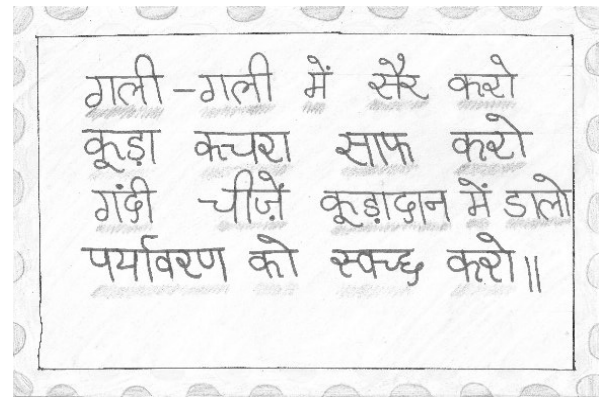 गली-गली में सैर करो
कूड़ा कचरा साफ करो
गंदी चीज़ें कूड़ादान में डालो
पर्यावरण को स्वच्छ करो॥